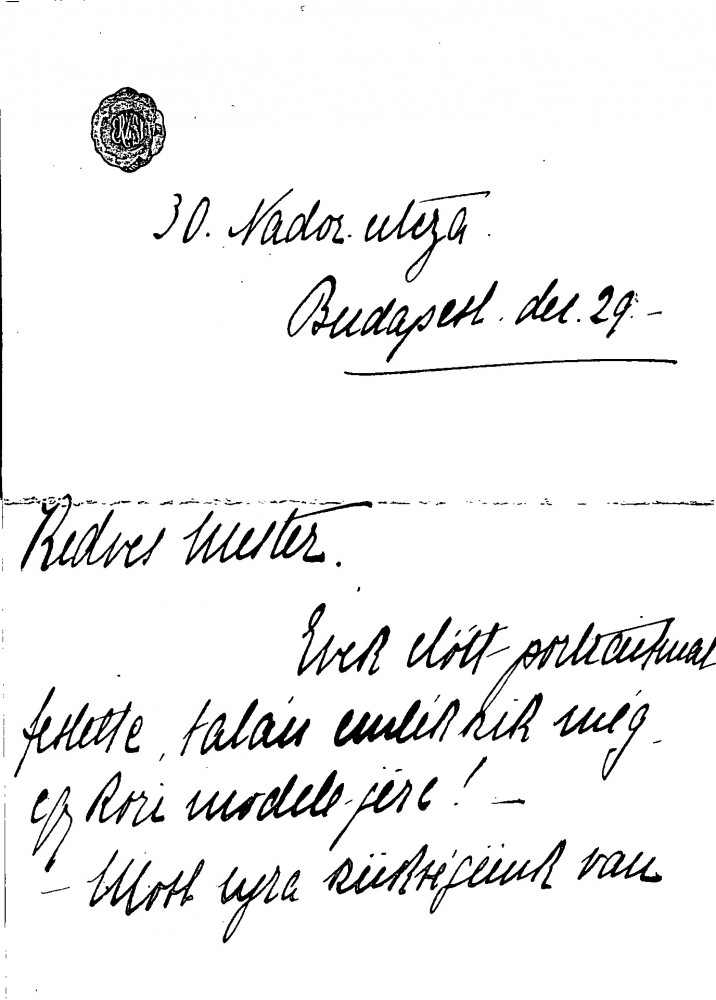 30. Nador utcza.
Budapest. dec. 29.–
Kedves Mester.
Evek előtt portraitmat
festette, talán emlékszik még
egykori modelljére! –
– Most ujra szükségünk van